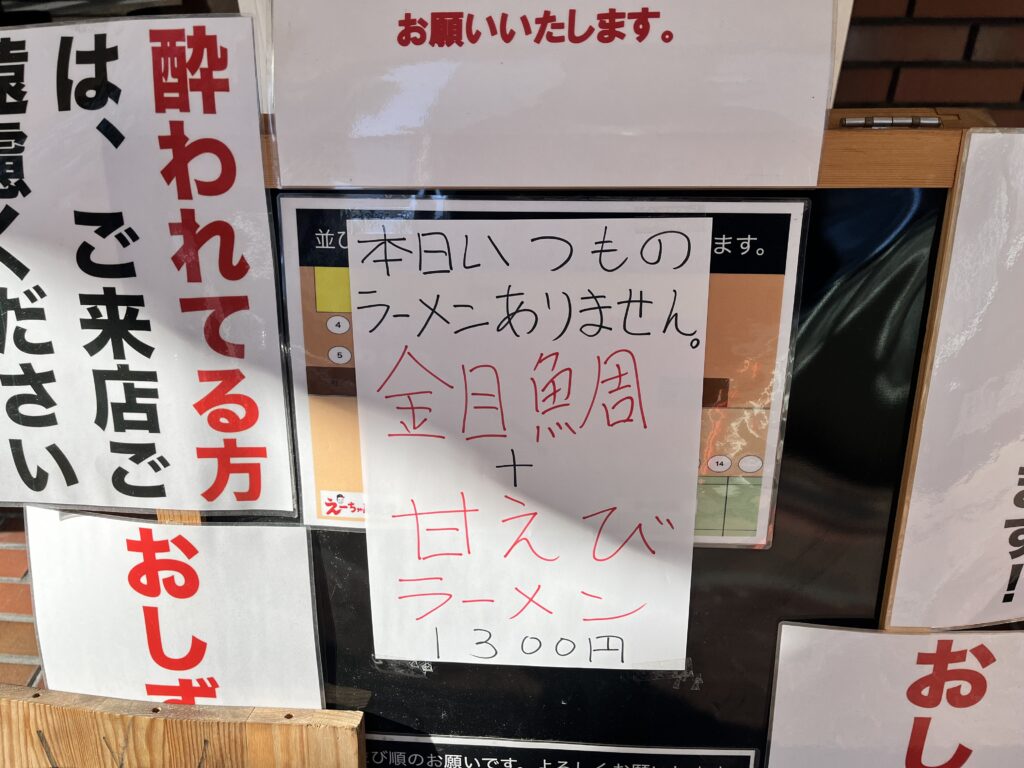 お願いいたします。
酔われてる方
は、ご来店ご
遠慮ください
並び
ます。
本日いつもの
ラーメンありません。
金目鯛
+
甘えび
ラーメン
1300円
4
5
14
えーちゃん
おしず
ます!!
おし
び順のお願いです。よろしくお願いします